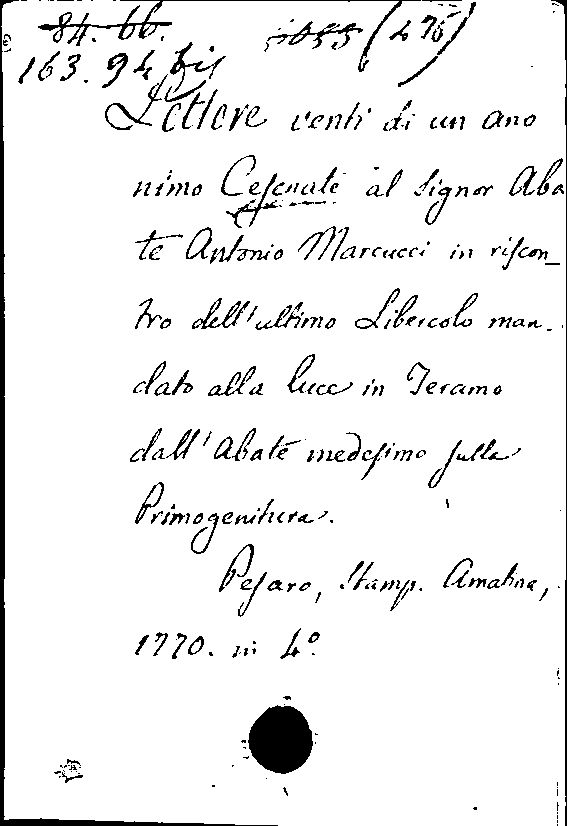 84. bb. 5055 (276)
163. 94 bis
Lettere venti di un ano
nimo Cesenate al Signor Aba
te Antonio Marcucci in riscon_
tro dell'ultimo Libercolo man_
dato alla luce in Teramo
dall'Abate medesimo sulla
Primogenitura.
Pesaro, Stamp. Amatina,
1770. in 4º